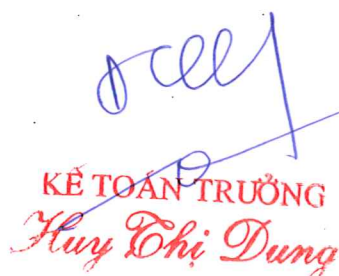 KẾ TOÁN TRƯỞNG
Huy Thị Dung